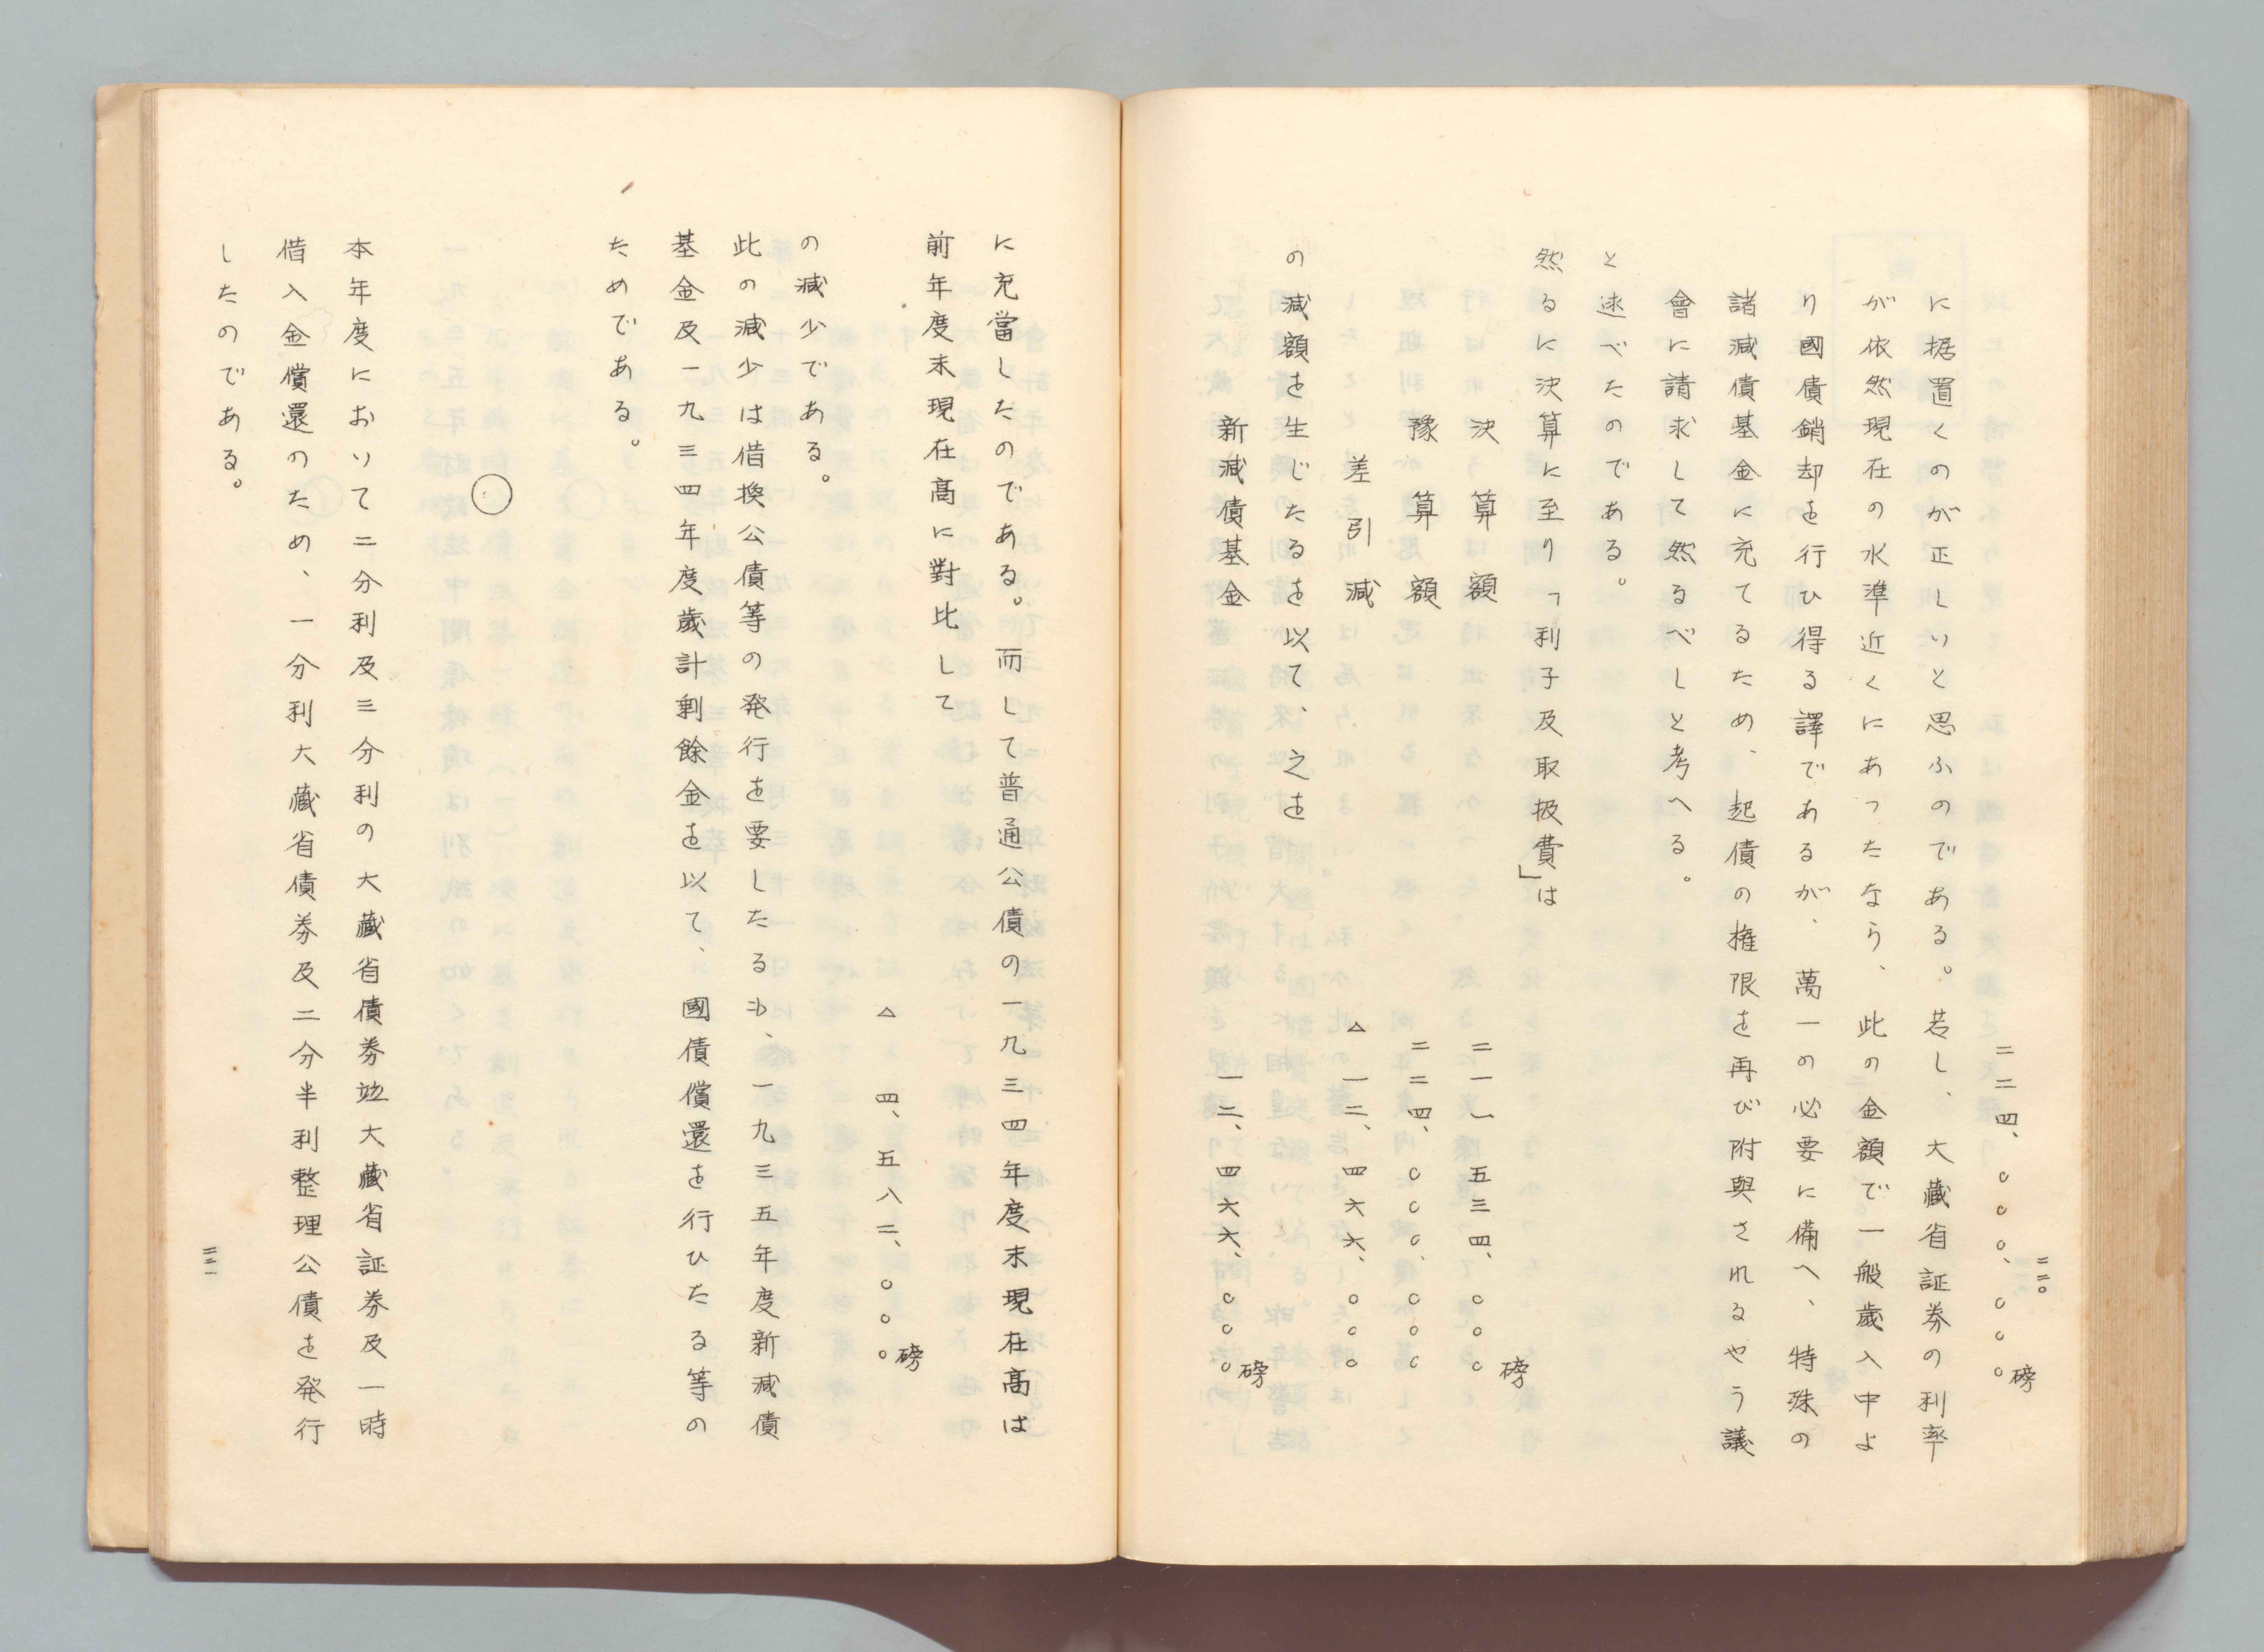 二二〇
二二四、〇〇〇、〇〇〇磅
に据置くのが正しいと思ふのである。若し、大藏省証券の利率
が依然現在の水準近くにあったなら、此の金額で一般歳入中よ
り國債銷却を行ひ得る譯であるが、萬一の必要に備へ、特殊の
諸減債基金に充てるため、起債の権限を再び附與されるやう議
會に請求して然るべしと考へる。
と述べたのである。
然るに決算に至り「利子及取扱費」は
決算額 二一一、五三四、〇〇〇磅
豫算額 二二四、〇〇〇、〇〇〇
差引減 △ 一二、四六六、〇〇〇
の減額を生じたるを以て、之を
新減債基金 一二、四六六、〇〇〇磅
に充當したのである。而して普通公債の一九三四年度末現在髙は
前年度末現在髙に對比して
△ 四、五八二、〇〇〇磅
の減少である。
此の減少は借換公債等の発行を要したるも、一九三五年度新減債
基金及一九三四年度歳計剰餘金を以て、國債償還を行ひたる等の
ためである。
〇
本年度において二分利及三分利の大藏省債券竝大藏省証券及一時
借入金償還のため、一分利大藏省債券及二分半利整理公債を発行
したのである。
二二一